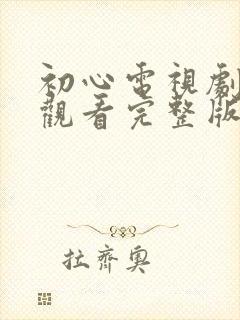 初心電視劇
觀看完整版
拉齊奧